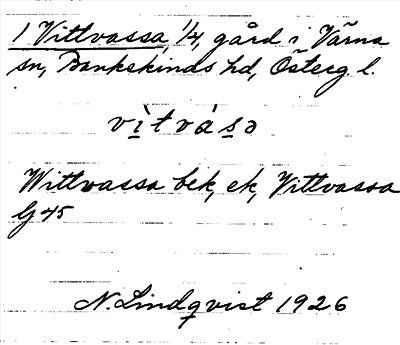 1 Vittvassa 1/4, gård i Värna
sn, Bankekinds hd, Österg l.
vìtvásə
Wittvassa bek, ek, Vittvassa
G 45
N. Lindqvist 1926